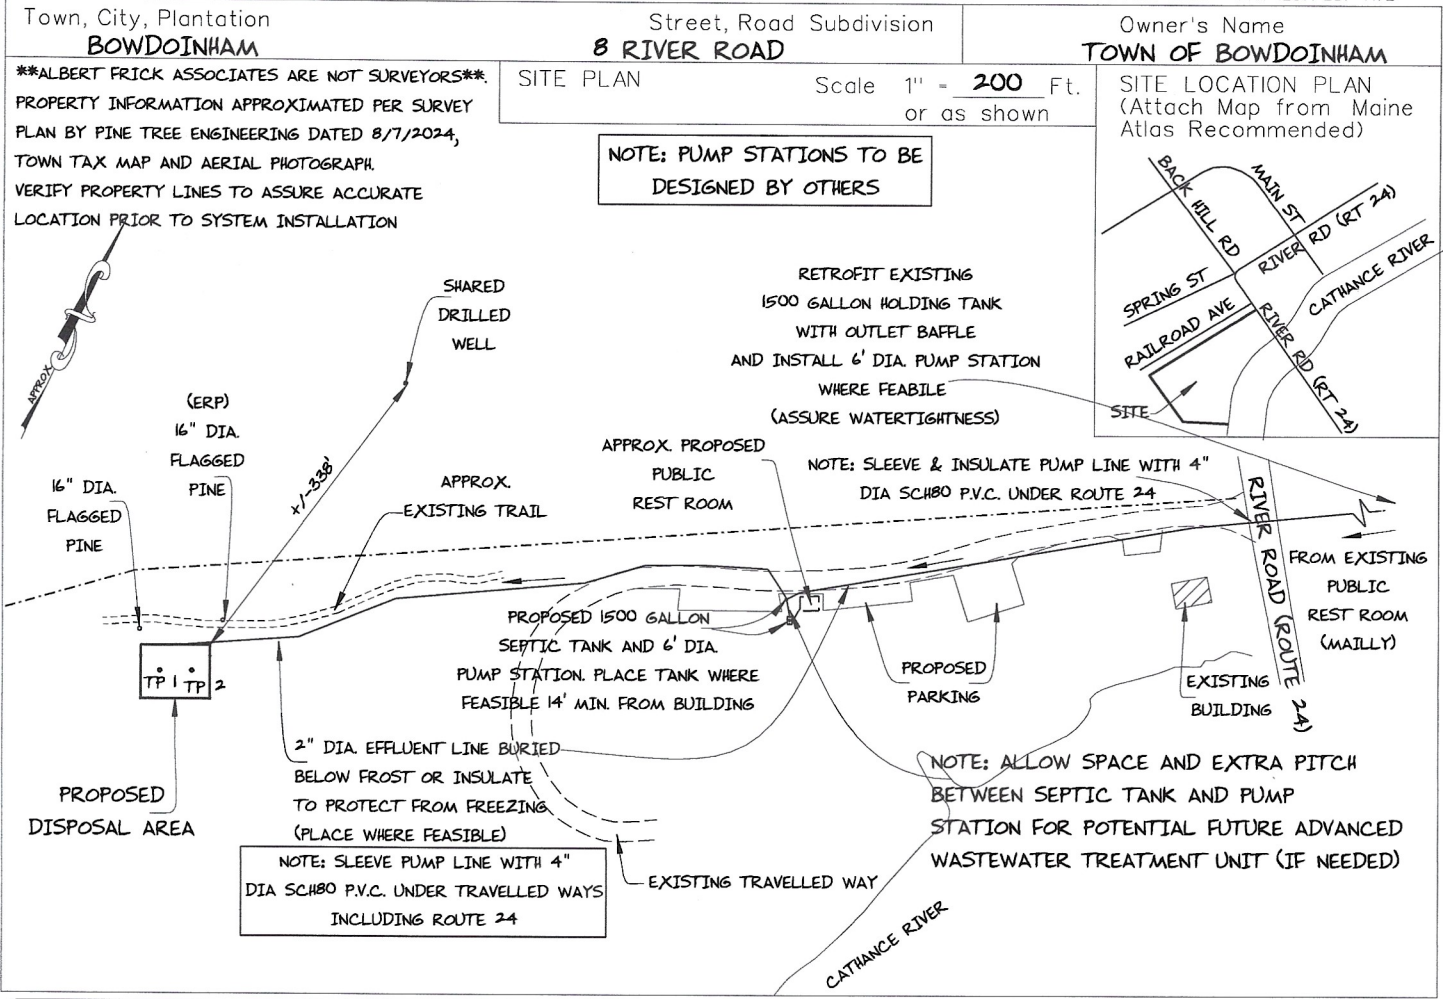 Town, City, Plantation
BOWDOINHAM
Street, Road Subdivision
8 RIVER ROAD
Owner's Name
TOWN OF BOWDOINHAM
**ALBERT FRICK ASSOCIATES ARE NOT SURVEYORS**.
PROPERTY INFORMATION APPROXIMATED PER SURVEY
PLAN BY PINE TREE ENGINEERING DATED 8/7/2024,
TOWN TAX MAP AND AERIAL PHOTOGRAPH.
VERIFY PROPERTY LINES TO ASSURE ACCURATE
LOCATION PRIOR TO SYSTEM INSTALLATION
SITE PLAN
Scale 1" = 200 Ft.
or as shown
SITE LOCATION PLAN
(Attach Map from Maine
Atlas Recommended)
NOTE: PUMP STATIONS TO BE
DESIGNED BY OTHERS
BACK HILL RD
MAIN ST
RIVER RD (RT 24)
SPRING ST
CATHANCE RIVER
RAILROAD AVE
RIVER RD (RT 24)
SITE
APPROX
SHARED
DRILLED
WELL
RETROFIT EXISTING
1500 GALLON HOLDING TANK
WITH OUTLET BAFFLE
AND INSTALL 6' DIA. PUMP STATION
WHERE FEABILE
(ASSURE WATERTIGHTNESS)
(ERP)
16" DIA.
FLAGGED
PINE
16" DIA.
FLAGGED
PINE
+/-338'
APPROX.
EXISTING TRAIL
APPROX. PROPOSED
PUBLIC
REST ROOM
NOTE: SLEEVE & INSULATE PUMP LINE WITH 4"
DIA SCH80 P.V.C. UNDER ROUTE 24
RIVER ROAD (ROUTE 24)
FROM EXISTING
PUBLIC
REST ROOM
(MAILLY)
PROPOSED 1500 GALLON
SEPTIC TANK AND 6' DIA.
PUMP STATION. PLACE TANK WHERE
FEASIBLE 14' MIN. FROM BUILDING
PROPOSED
PARKING
EXISTING
BUILDING
TP 1 TP 2
PROPOSED
DISPOSAL AREA
2" DIA. EFFLUENT LINE BURIED
BELOW FROST OR INSULATE
TO PROTECT FROM FREEZING
(PLACE WHERE FEASIBLE)
NOTE: SLEEVE PUMP LINE WITH 4"
DIA SCH80 P.V.C. UNDER TRAVELLED WAYS
INCLUDING ROUTE 24
EXISTING TRAVELLED WAY
NOTE: ALLOW SPACE AND EXTRA PITCH
BETWEEN SEPTIC TANK AND PUMP
STATION FOR POTENTIAL FUTURE ADVANCED
WASTEWATER TREATMENT UNIT (IF NEEDED)
CATHANCE RIVER